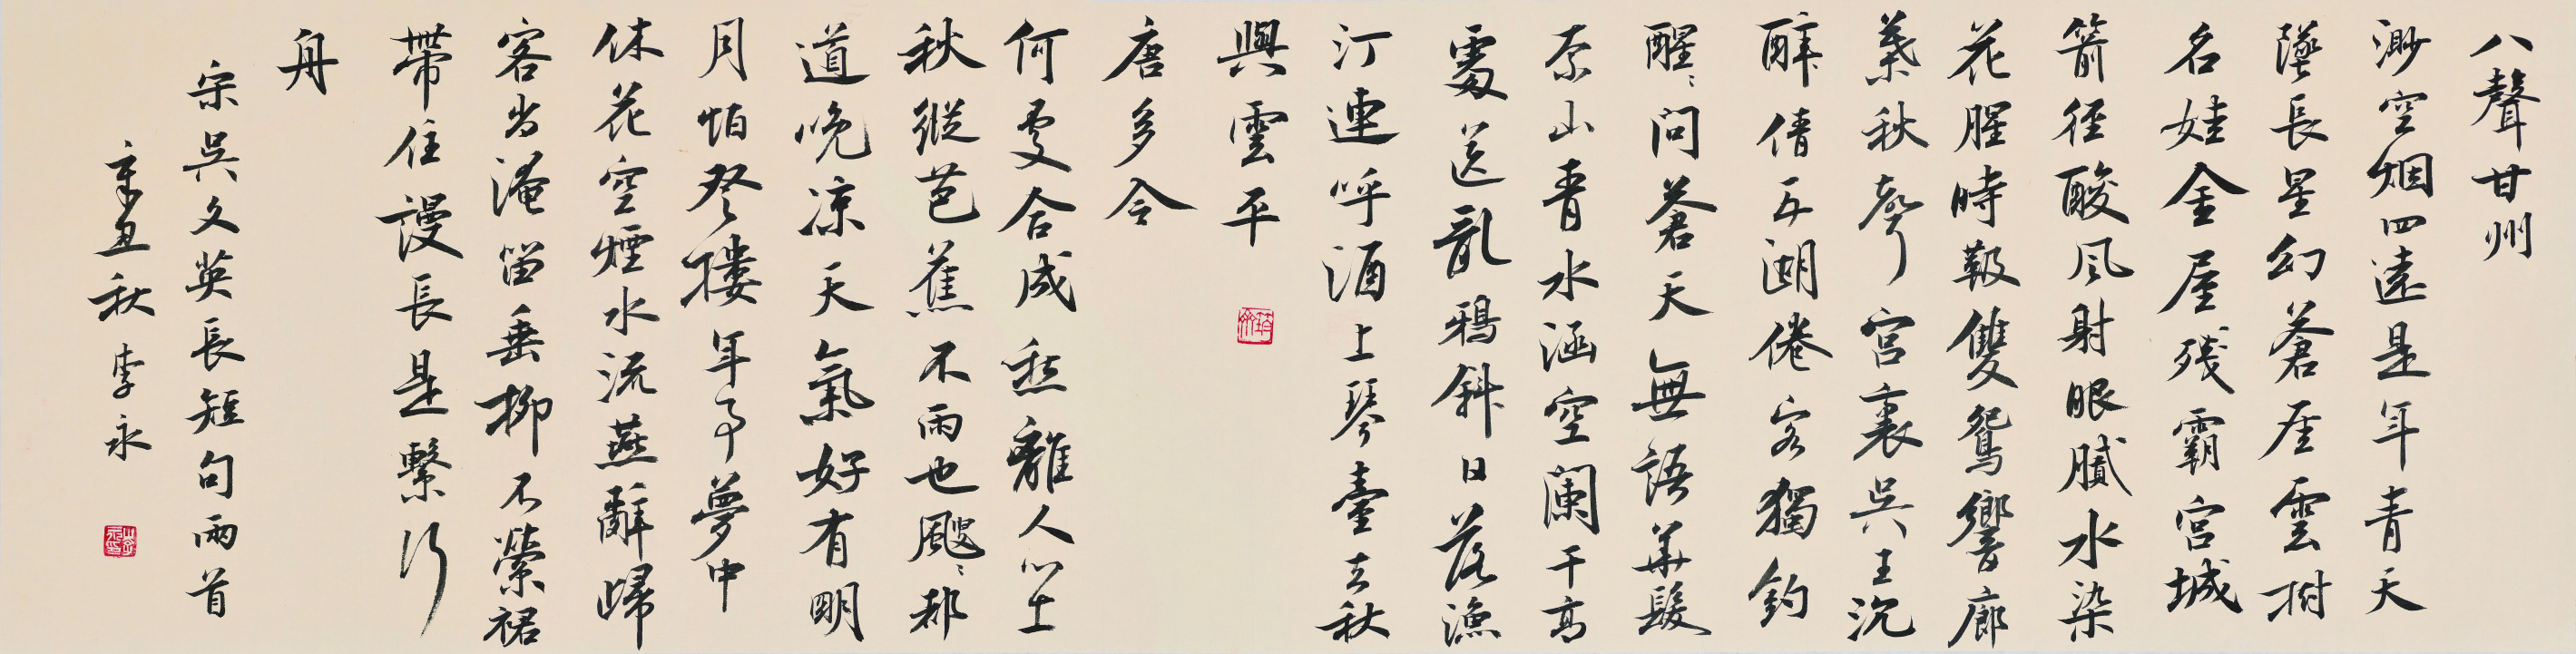 八聲甘州
渺空烟四遠是年青天
墜長星幻蒼崖雲樹
名娃金屋殘霸宮城
箭徑酸風射眼膩水染
花腥時靸雙鴛響廊
葉秋聲宮裏吳王沉
醉倩五湖倦客獨釣
醒醒問蒼天無語華髮
奈山青水涵空闌干高
處送亂鴉斜日落漁
汀連呼酒上琴臺去秋
與雲平
唐多令
何處合成愁離人心上
秋縱芭蕉不雨也颼颼都
道晚涼天氣好有明
月怕登樓年事夢中
休花空煙水流燕辭歸
客尚淹留垂柳不縈裙
帶住謾長是繫行
舟
宋吳文英長短句兩首
辛丑秋李永